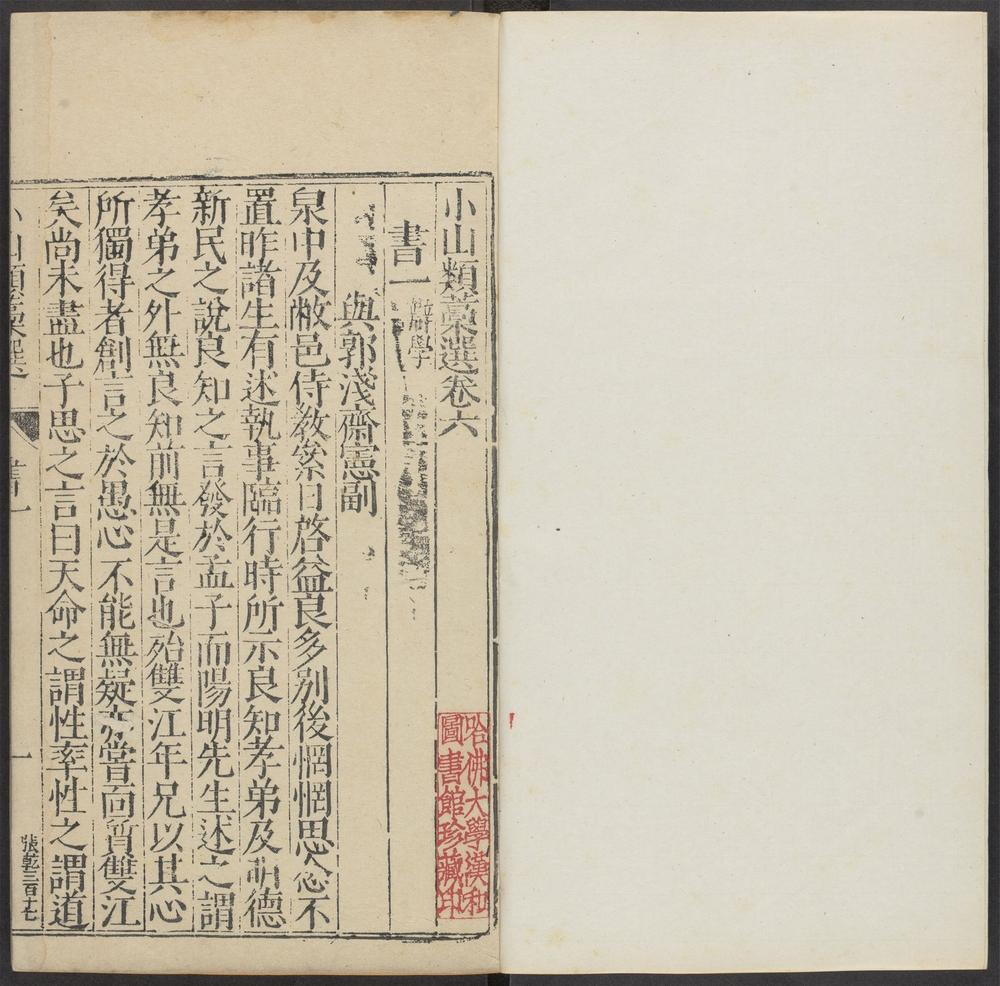 小山類藁選卷六
書一 論學
與郭淺齋憲副
泉中及敝邑侍教累日啓益良多別後惘惘思念不
置昨諸生有述執事臨行時所示良知孝弟及明德
新民之說良知之言發於孟子而陽明先生述之謂
孝弟之外無良知前無是言也殆雙江年兄以其心
所獨得者創言之於愚心不能無疑亦嘗面質雙江
矣尚未盡也子思之言曰天命之謂性率性之謂道
小山類藁選
書一
一
張乾三百十七
哈佛大學漢和
圖書館珍藏印